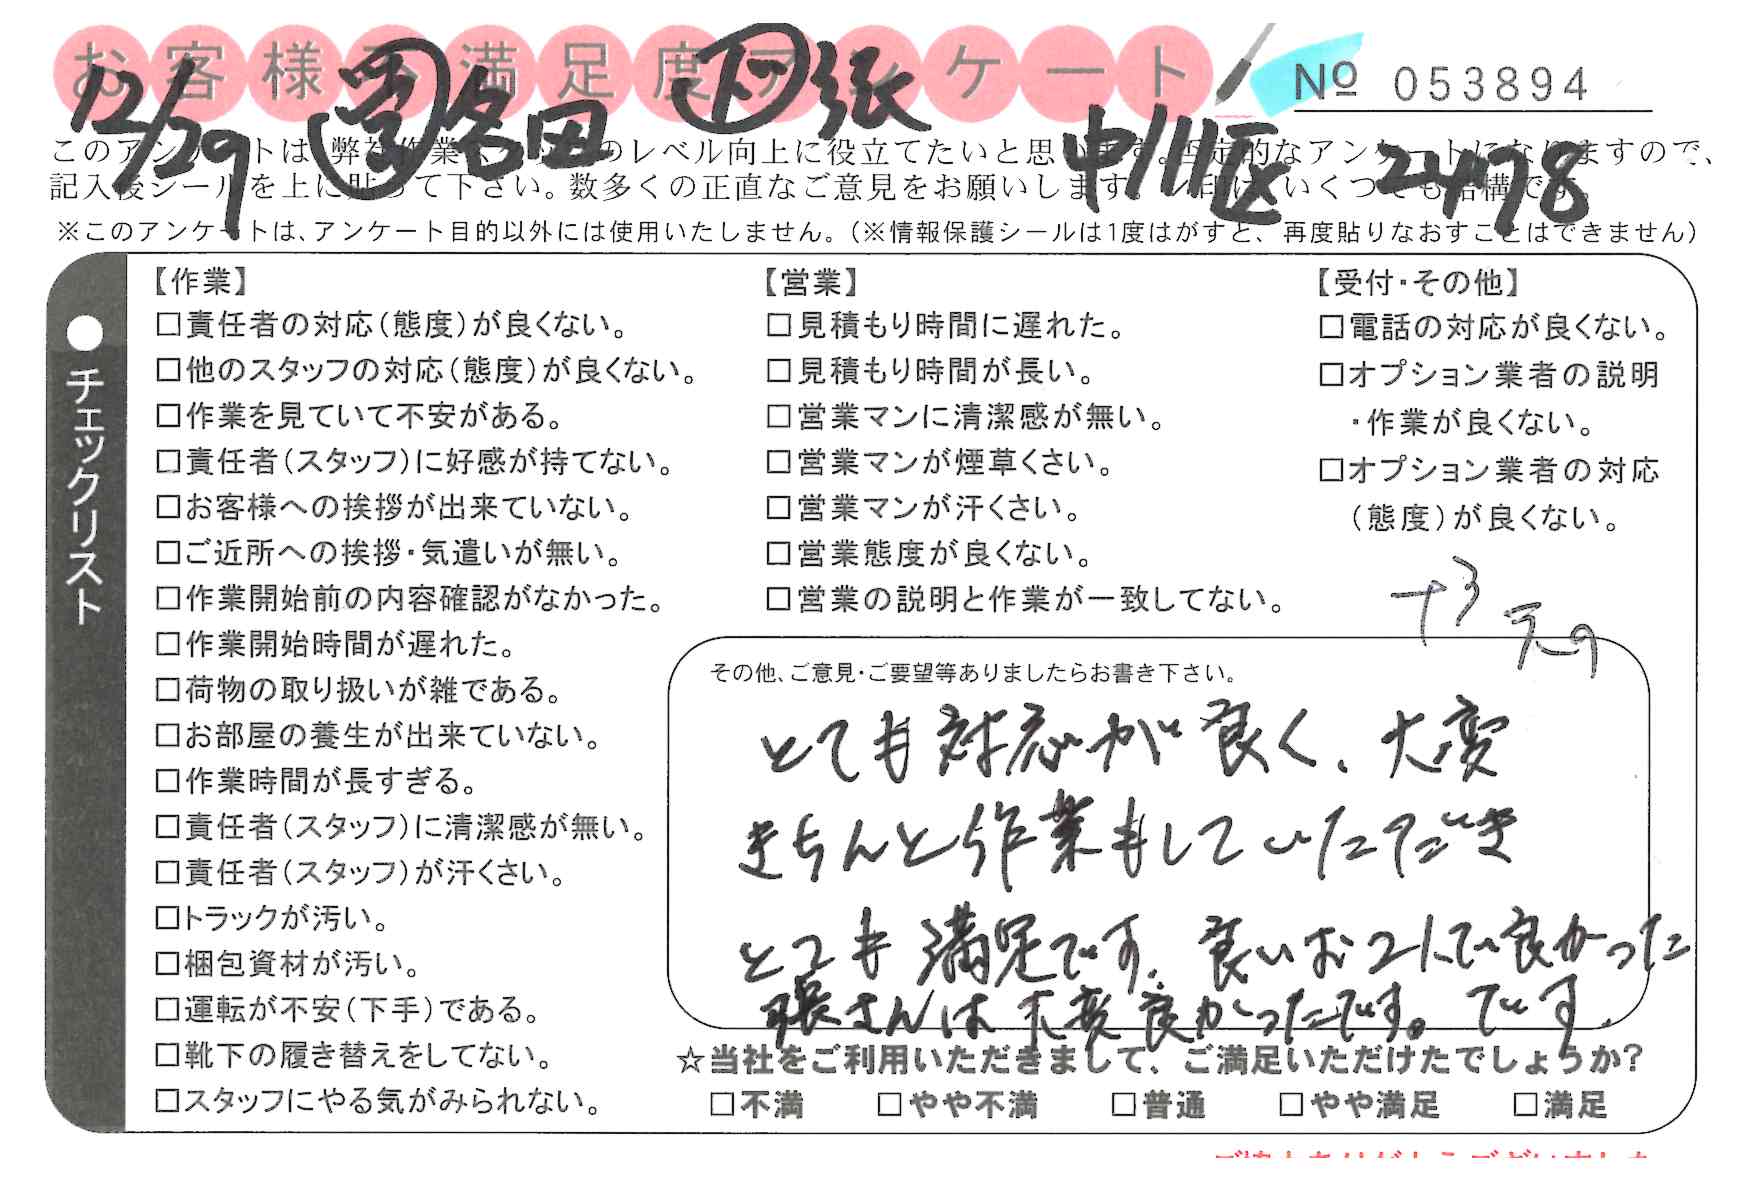 お客様不満足度アンケート
No 053894
12/29 営 名田 下 張
中川区 2478
このアンケートは、弊社作業 のレベル向上に役立てたいと思います。否定的なアンケートになりますので、
記入後シールを上に貼って下さい。数多くの正直なご意見をお願いします。レ印は、いくつでも結構です。
※このアンケートは、アンケート目的以外には使用いたしません。(※情報保護シールは1度はがすと、再度貼りなおすことはできません)
●チェックリスト
【作業】
□責任者の対応(態度)が良くない。
□他のスタッフの対応(態度)が良くない。
□作業を見ていて不安がある。
□責任者(スタッフ)に好感が持てない。
□お客様への挨拶が出来ていない。
□ご近所への挨拶・気遣いが無い。
□作業開始前の内容確認がなかった。
□作業開始時間が遅れた。
□荷物の取り扱いが雑である。
□お部屋の養生が出来ていない。
□作業時間が長すぎる。
□責任者(スタッフ)に清潔感が無い。
□責任者(スタッフ)が汗くさい。
□トラックが汚い。
□梱包資材が汚い。
□運転が不安(下手)である。
□靴下の履き替えをしてない。
□スタッフにやる気がみられない。
【営業】
□見積もり時間に遅れた。
□見積もり時間が長い。
□営業マンに清潔感が無い。
□営業マンが煙草くさい。
□営業マンが汗くさい。
□営業態度が良くない。
□営業の説明と作業が一致してない。
【受付・その他】
□電話の対応が良くない。
□オプション業者の説明
・作業が良くない。
□オプション業者の対応
(態度)が良くない。
その他、ご意見・ご要望等ありましたらお書き下さい。
とても対応が良く、大変
きちんと作業もしていただき
とても満足です。良いお2人で良かった
です。
張さんは大変良かったです。
☆当社をご利用いただきまして、ご満足いただけたでしょうか?
□不満 □やや不満 □普通 □やや満足 □満足